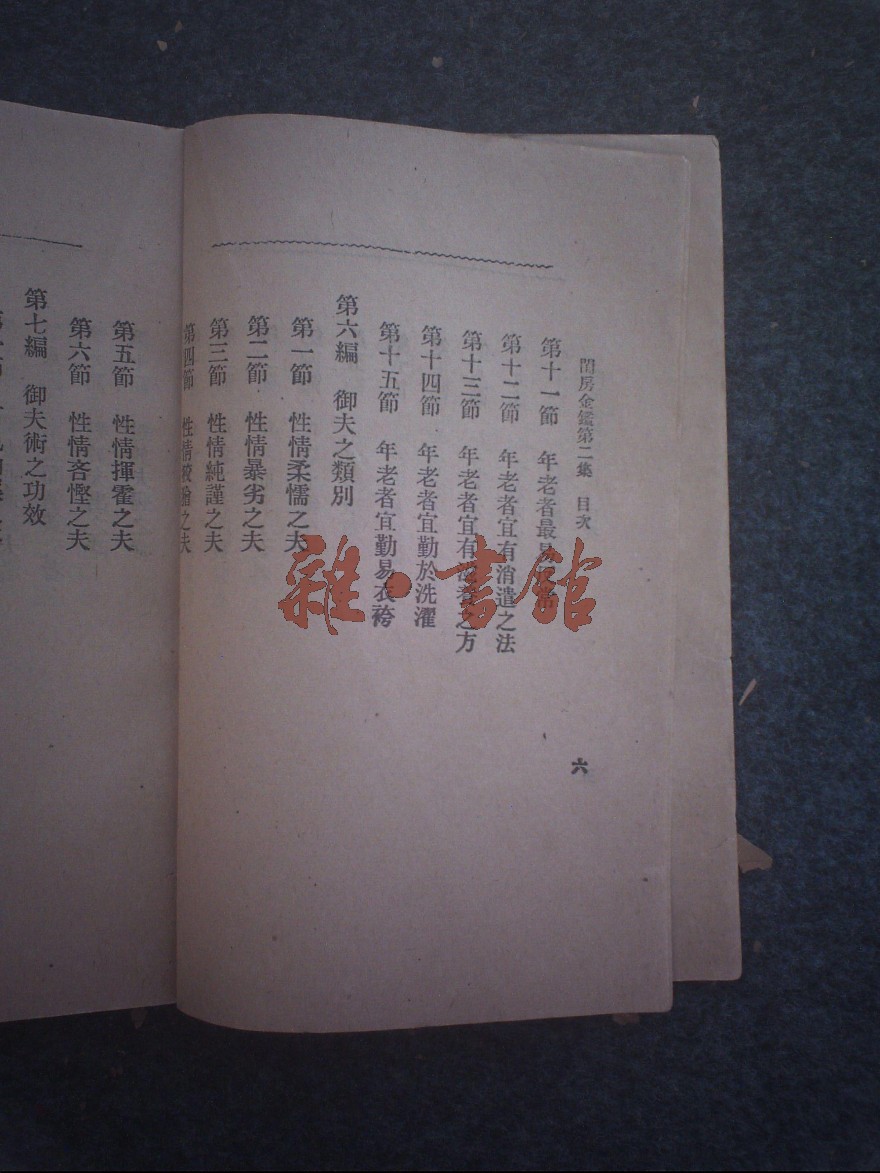 閨房金鑑第二集 目次
六
第十一節 年老者最易
第十二節 年老者宜有消遣之法
第十三節 年老者宜有之方
第十四節 年老者宜勤於洗濯
第十五節 年老者宜勤易衣袴
第六編 御夫之類別
第一節 性情柔懦之夫
第二節 性情暴劣之夫
第三節 性情純謹之夫
第四節 性情之夫
第五節 性情揮霍之夫
第六節 性情吝慳之夫
第七編 御夫術之功效
雜·書館